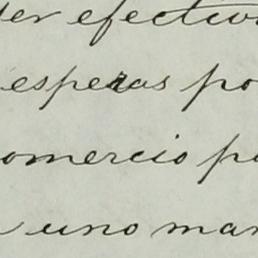 der efectiv
esperas po
omercio p
uno man